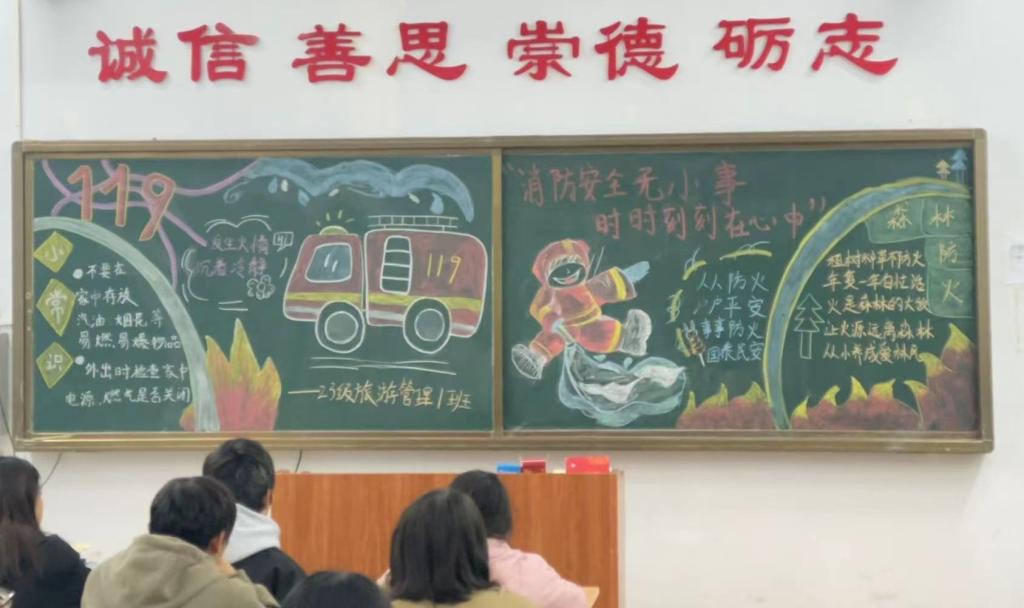 诚信 善思 崇德 砺志
119
小常识
不要在
家中存放
汽油、烟花等
易燃、易爆物品
外出时检查家中
电源、燃气是否关闭
发生火情时
沉着冷静
119
——23级旅游管理1班
"消防安全无小事
时时刻刻在心中"
人人防火
户户平安
事事防火
国泰民安
森林
防
火
植树种草不防火
年复一年白忙活
火是森林的大敌
让火源远离森林
从小养成爱林风